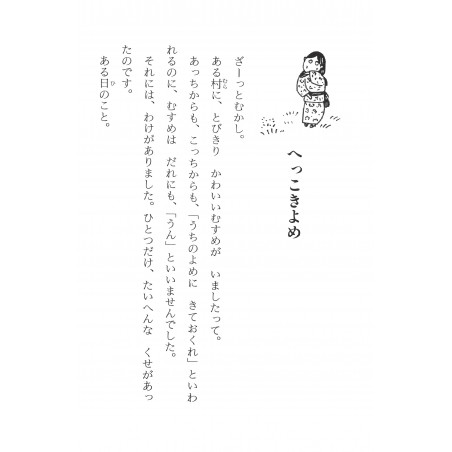 へっこきよめ
ざーっとむかし。
ある村に、とびきり　かわいいむすめが　いましたって。
あっちからも、こっちからも、「うちのよめに　きておくれ」といわ
れるのに、むすめは　だれにも、「うん」といいませんでした。
それには、わけがありました。ひとつだけ、たいへんな　くせがあっ
たのです。
ある日のこと。